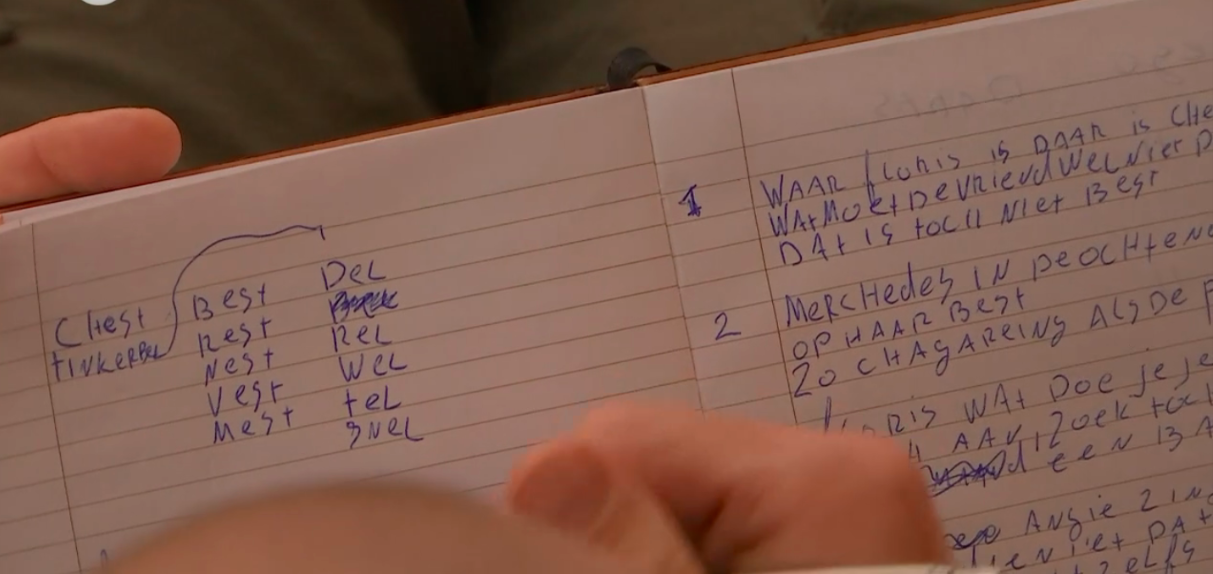 Chest
tinkerbel
Best
Rest
Nest
Vest
Mest
Del
Rel
Wel
tel
Snel
1
WAAR floris is DAAR is Che
WAt Moet De Vriend Wel Niet
DAt is toch Niet Best
2
Merchedes IN De OCHteN
OP HAAR Best
Zo CHAgAREiNg Als De
WAt Doe je je
AAN, Zoek toch
eeN BA
Angie ZiN
DAt
Zelfs